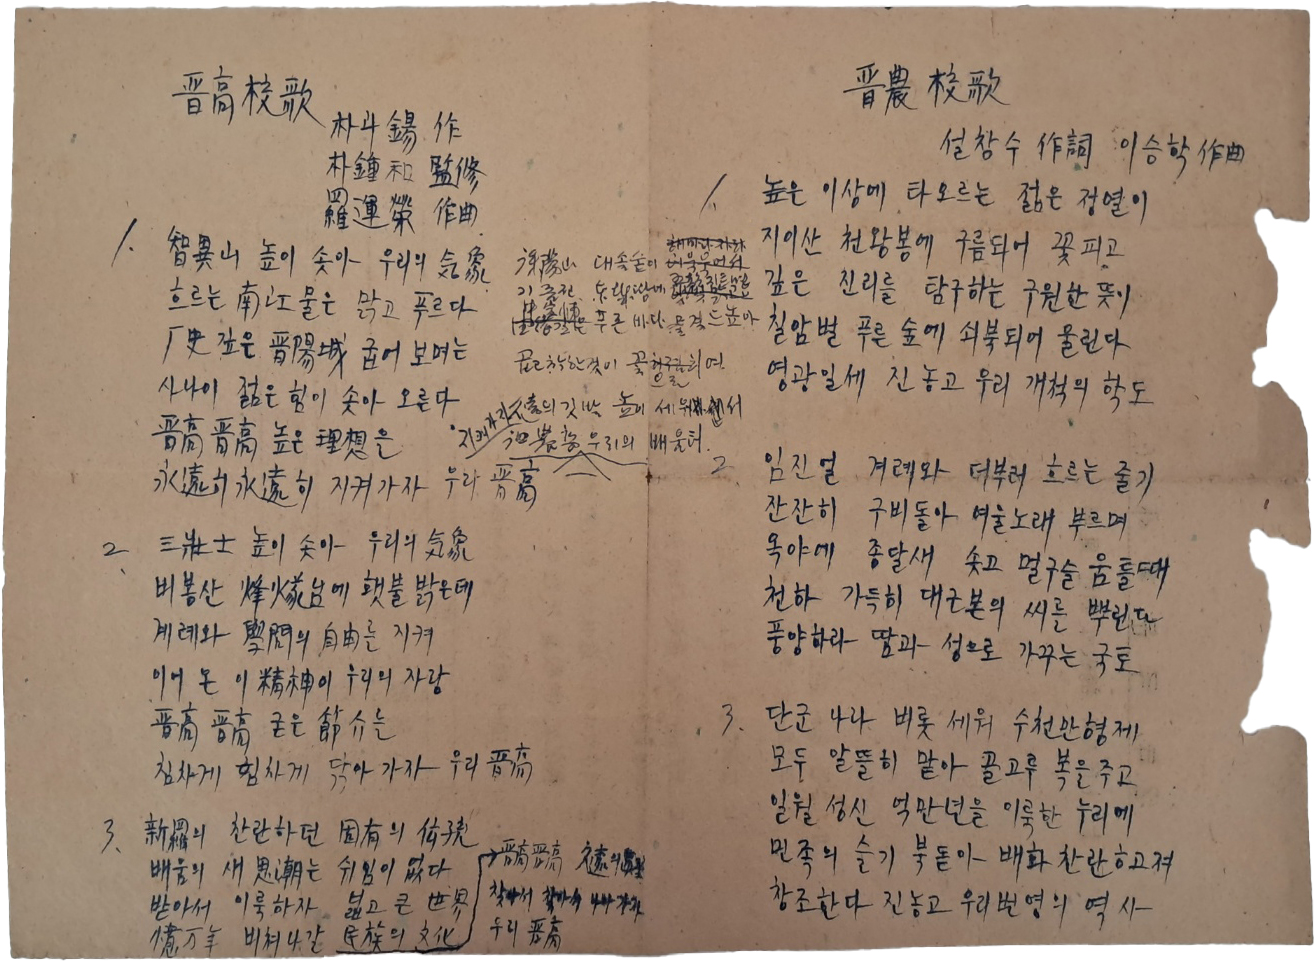 晋高校歌
朴斗錫 作
朴鍾和 監修
羅運榮 作曲
1. 智異山 높이 솟아 우리의 気象
흐르는 南江물은 맑고 푸르다
历史 깊은 晋陽城 굽어 보며는
사나이 젊은 힘이 솟아 오른다
晋高 晋高 높은 理想을
永遠히 永遠히 지켜가자 우리 晋高
2. 三壯士 높이 솟아 우리의 気象
비봉산 烽火台에 횃불 밝은데
계레와 學問의 自由를 지켜
이어 온 이 精神이 우리의 자랑
晋高 晋高 굳은 節介는
힘차게 힘차게 닦아 가자 우리 晋高
3. 新羅의 찬란하던 固有의
배움의 새 思潮는 쉬임이 없다
받아서 이룩하자 넓고 큰 世界
億万年 비쳐 나갈 民族의 文化
晋高 晋高 久遠의
찾아서 찾아서 나아가자
우리 晋高
대속숱이
푸른 바다 물결 드높아
꽃
깃빨 높이 세워
우리의 배울터
晋農 校歌
설창수 作詞 이승학 作曲
1. 높은 이상에 타오르는 젊은 정열이
지이산 천왕봉에 구름되어 꽃 피고
깊은 진리를 탐구하는 구원한 뜻이
칠암벌 푸른 숲에 쇠북되어 울린다
영광일세 진농고 우리 개척의 학도
2. 임진얼 겨레와 더부러 흐르는 줄기
잔잔히 구비돌아 여울노래 부르며
옥야에 종달새 솟고 멀구슬 움틀때
천하 가득히 대근본의 씨를 뿌린다
풍양하라 땀과 성으로 가꾸는 국토
3. 단군 나라 비롯 세워 수천만형제
모두 알뜰히 맡아 골고루 복을 주고
일월 성신 억만년을 이룩한 누리에
민족의 슬기 북돋아 배화 찬란하고저
창조한다 진농고 우리 번영의 역사